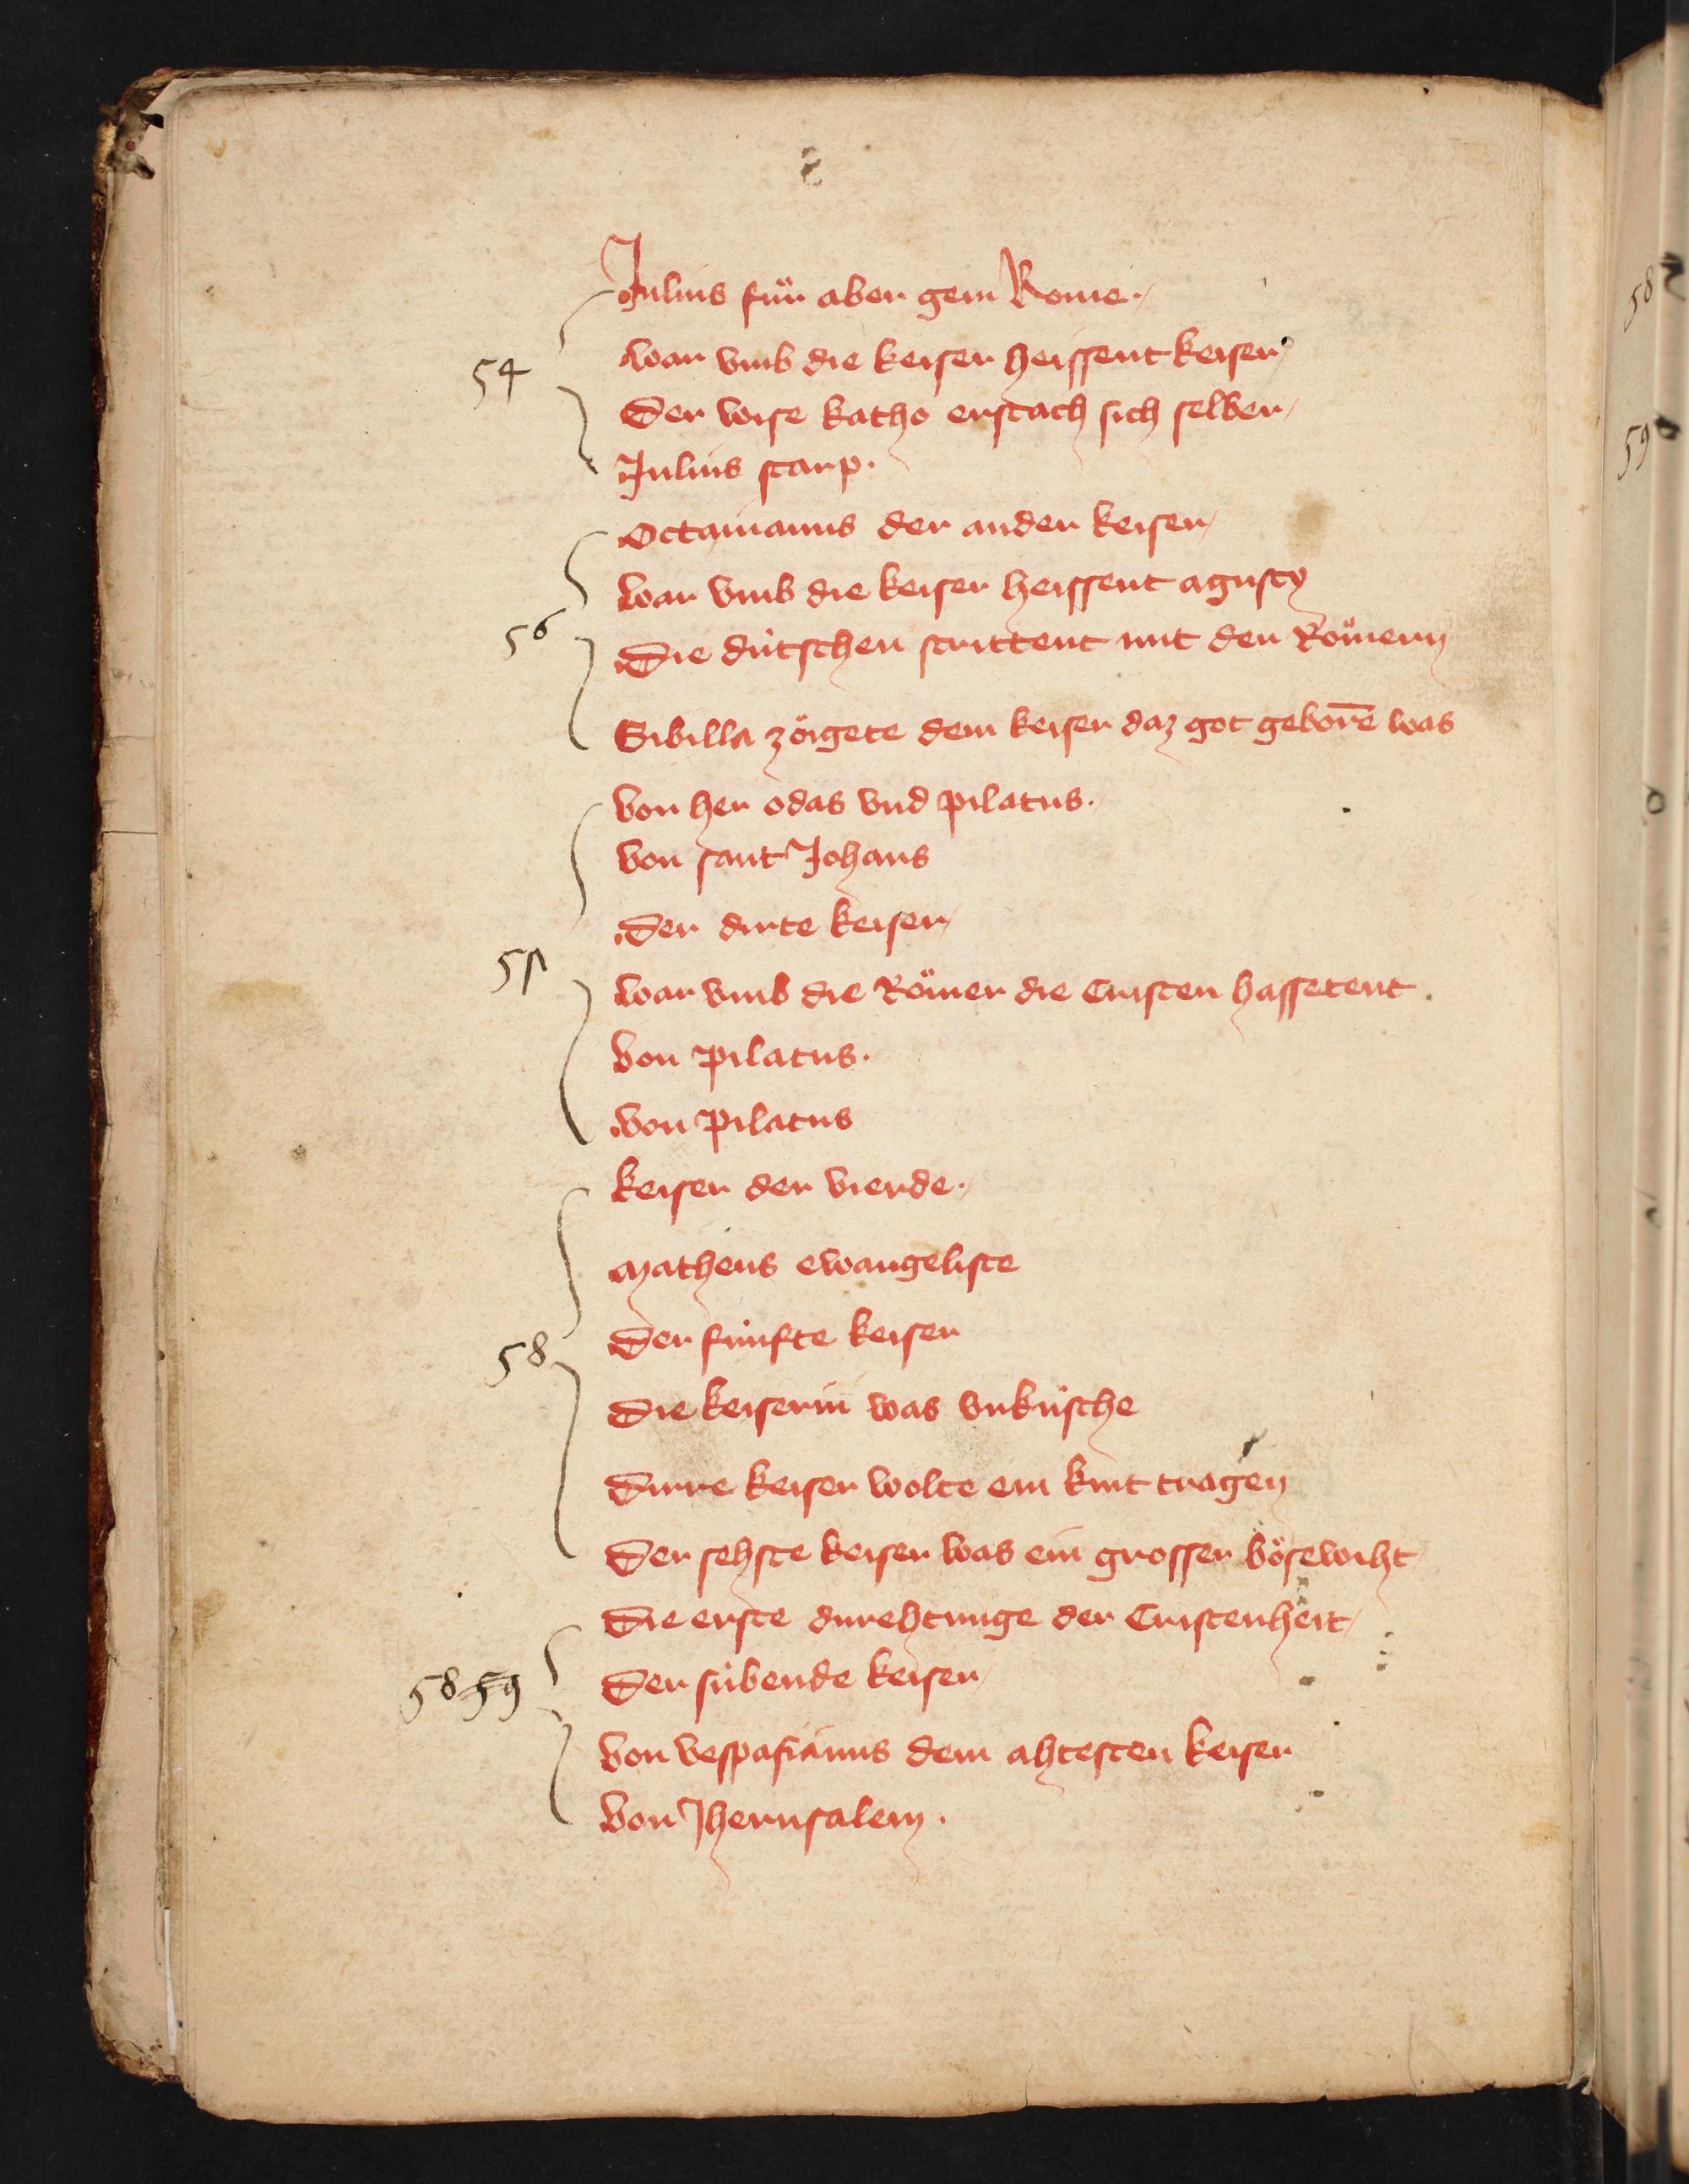 Julius fuͦr aber gein Rome.
54
war vmb die keiser heissent keiser
Der wise katho erstach sich selber
Julius starp.
Octauianus der ander keiser
war vmb die keiser heissent agusty
56
Die dútschen strittent mit den Roͤmern
Sibilla zoͤigete dem keiser daz got geborē was
von her odas vnd pilatus.
von sant Johans
Der dirte keiser
war vmb die Roͤmer die Cristen hassetent.
von pilatus.
von pilatus
keiser der vierde.
Matheus ewangeliste
Der fúnfte keiser
58
Die keiserin was vnkúsche
Dirre keiser wolte ein kint tragen
Der sehste keiser was ein grosser boͤsewiht
Die erste durehtunge der Cristenheit
58 59
Der súbende keiser
von vespasianus dem ahtesten keiser
von Jherusalem.
58
59